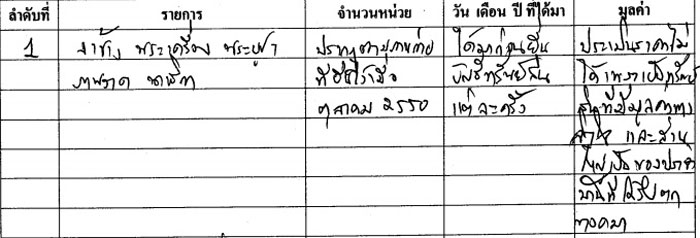 ลำดับที่ รายการ จำนวนหน่วย วัน เดือน ปี ที่ได้มา มูลค่า
1 งาช้าง พระเครื่อง พระบูชา ได้มาก่อนยื่น ประเมินราคาไม่
ภาพวาด นาฬิกา ที่ยื่นไว้เมื่อ บัญชีทรัพย์สิน ได้ เพราะเป็นทรัพย์
ตุลาคม 2550 แต่ละครั้ง สินที่มีมูลค่าทาง
และส่วน
ใหญ่เป็นของ
ตก
ทอดมา